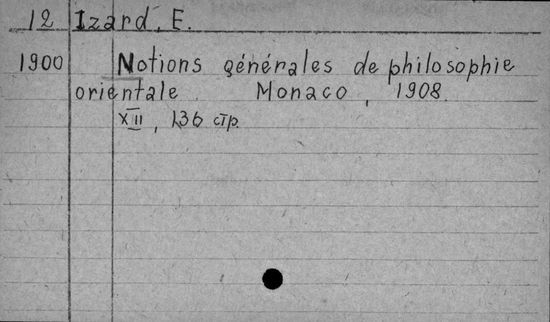 12 Izard, E.
1900 Notions générales de philosophie
orientale. Monaco, 1908.
XII, 136 стр.